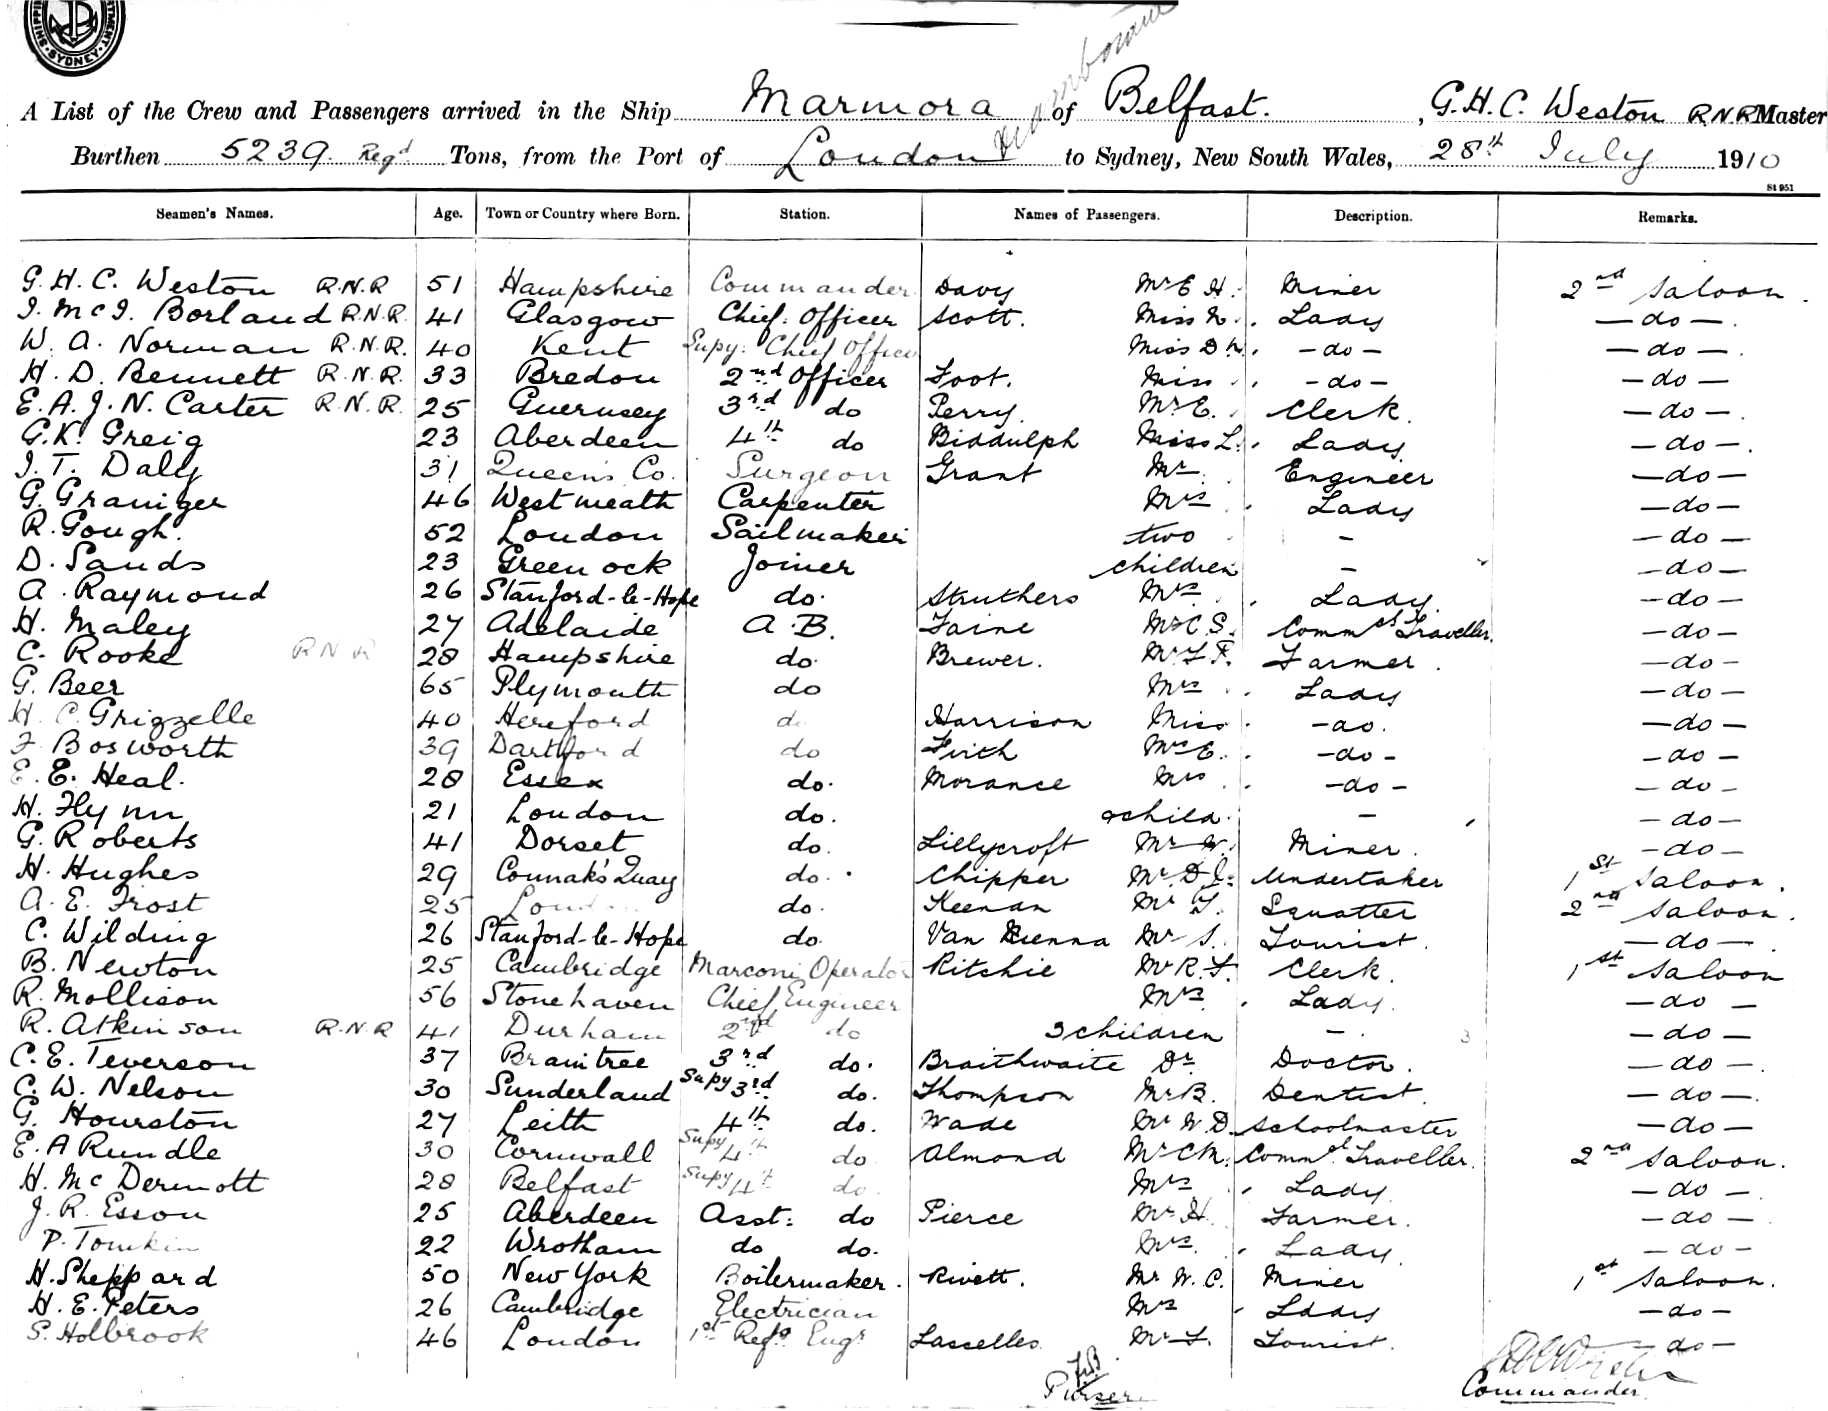 SYDNEY
A List of the Crew and Passengers arrived in the Ship Marmora of Belfast. , G. H. C. Weston R.N.R Master
Burthen 5239 Regd Tons, from the Port of London to Sydney, New South Wales, 28th July 1910
St 951
Seamen's Names. Age. Town or Country where Born. Station. Names of Passengers. Description. Remarks.
G. H. C. Weston R.N.R 51 Hampshire Commander Davy Mr E H. Miner 2nd Saloon.
I. McI. Borland R.N.R. 41 Glasgow Chief Officer Scott. Miss N. Lady -do-.
W. A. Norman R.N.R. 40 Kent Supy: Chief Officer Miss D -do- -do-.
H. D. Bennett R.N.R. 33 Bredon 2nd Officer Foot. Miss -do- -do-
E. A. J. N. Carter R.N.R. 25 Guernsey 3rd do Perry. Mr E. Clerk. -do-.
G. K. Greig 23 Aberdeen 4th do Biddulph Miss L. Lady -do-.
I. T. Daly 31 Queen's Co. Surgeon Grant Mr. Engineer -do-
G. Graniger 46 Westmeath Carpenter Mrs Lady -do-
R. Gough. 52 London Sailmaker two - -do-
D. Sands 23 Greenock Joiner children - -do-
A. Raymond 26 Stanford-le-Hope do. Struthers Mrs Lady. -do-
H. Maley 27 Adelaide A.B. Faine Mr C. S. Commcl Traveller. -do-
C. Rooke R N R 28 Hampshire do. Brewer. Mr F. Farmer. -do-
G. Beer 65 Plymouth do Mrs Lady -do-
H. C. Grizzelle 40 Hereford do Harrison Miss -do. -do-
F Bosworth 39 Dartford do Firth Mrs E. -do- -do-
E. E. Heal. 28 Essex do. Morance Mrs -do- -do-
H. Flynn 21 London do. child. - -do-
G. Roberts 41 Dorset do. Lillycroft Mr W. Miner. -do-
H. Hughes 29 Connah's Quay do. Chipper Mr D J. Undertaker 1st Saloon.
A. E. Frost 25 do. Keenan Mr Squatter 2nd Saloon.
C. Wilding 26 Stanford-le-Hope do. Van Mr S. Tourist. -do-.
B. Newton 25 Cambridge Marconi Operator Ritchie Mr R. Clerk. 1st Saloon
R. Mollison 56 Stonehaven Chief Engineer Mrs. Lady. -do-
R. Atkinson R.N.R 41 Durham 2nd do 3 children -. -do-
C. E. Teverson 37 Braintree 3rd do. Braithwaite Dr Doctor. -do-.
C. W. Nelson 30 Sunderland Supy 3rd do. Thompson Mr B. Dentist. -do-.
G. Hourston 27 Leith 4th do. Wade Mr W. D. Schoolmaster -do-
E. A Rundle 30 Cornwall Supy 4th do Almond Mr C M. Commcl Traveller. 2nd Saloon.
H. McDermott 28 Belfast Supy 4th do. Mrs Lady. -do-.
J. R. Esson 25 Aberdeen Asst: do Pierce Mr H. Farmer. -do-.
P. Tomkin 22 Wrotham do do. Mrs. Lady. -do-
H. Sheppard 50 New York Boilermaker. Rivett. Mr W. C. Miner 1st Saloon.
H. E. Peters 26 Cambridge Electrician Mrs Lady -do-
S. Holbrook 46 London 1st Refg. Engr Lasselles Mr Tourist. do-
Purser
Commander.